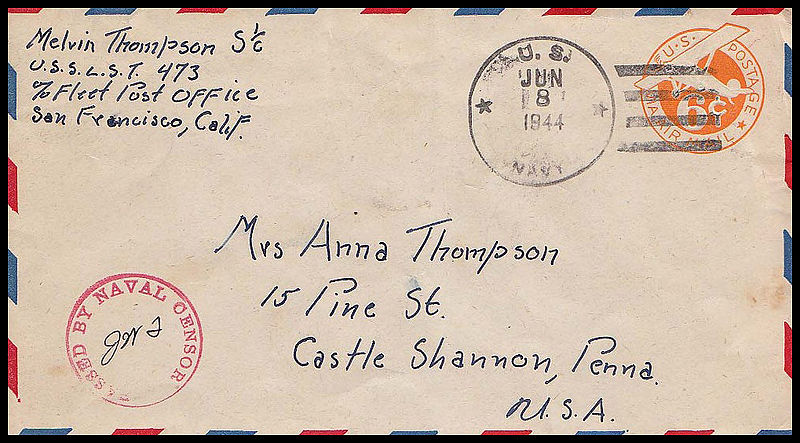 Melvin Thompson S 1/C
U.S.S. L.S.T. 473
c/o Fleet Post Office
San Francisco, Calif.
U. S.
JUN
8
1944
NAVY
U.S. POSTAGE
6¢
AIR MAIL
Mrs Anna Thompson
15 Pine St.
Castle Shannon, Penna.
U.S.A.
PASSED BY NAVAL CENSOR